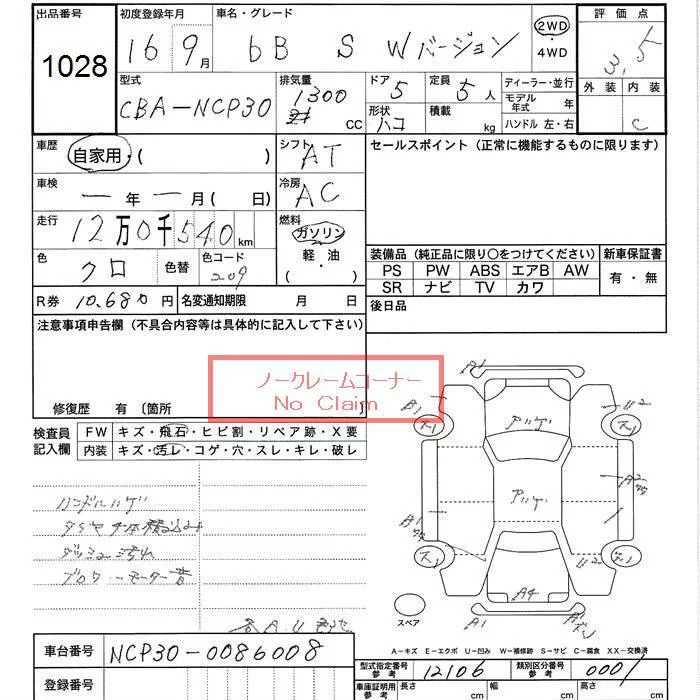 出品番号 初度登録年月 車名・グレード 2WD ・ 4WD 評価点
1028 16 9月 bB S Wバージョン 3.5
型式 排気量 ドア 5 定員 5人 ディーラー・並行 外装 内装
CBA-NCP30 1300 CC 形状 ハコ 積載 kg モデル年式 年 C
ハンドル 左・右
車歴 自家用・( ) シフト AT セールスポイント(正常に機能するものに限ります)
車検 ー年ー月( 日) 冷房 AC
走行 12万0千540km 燃料 ガソリン・軽・油 ( )
色 クロ 色替 色コード 209
装備品(純正品に限り○をつけてください) 新車保証書
PS PW ABS エアB AW 有・無
SR ナビ TV カワ
R券 10.680円 名変通知期限 月 日 後日品
注意事項申告欄(不具合内容等は具体的に記入して下さい)
ノークレームコーナー
No Claim
修復歴 有〔箇所
検査員記入欄 FW キズ・飛石・ヒビ割・リペア跡・X要
内装 キズ・汚レ・コゲ・穴・スレ・キレ・破レ
ハンドルハゲ
タイヤ4本積込み
ダッシュ汚れ
ブロワーモーター音
A1
B1 U2
スレ スレ
ハゲ
ハゲ
A2
A1
スレ U2 スレ
A4
スペア A1
A-キズ E-エクボ U-凹み W-補修跡 S-サビ C-腐食 XX-交換済
車台番号 NCP30-0086008
型式指定番号 参考 12106 類別区分番号 参考 0001
登録番号
車庫証明用 参考 長さ cm 幅 cm 高さ cm